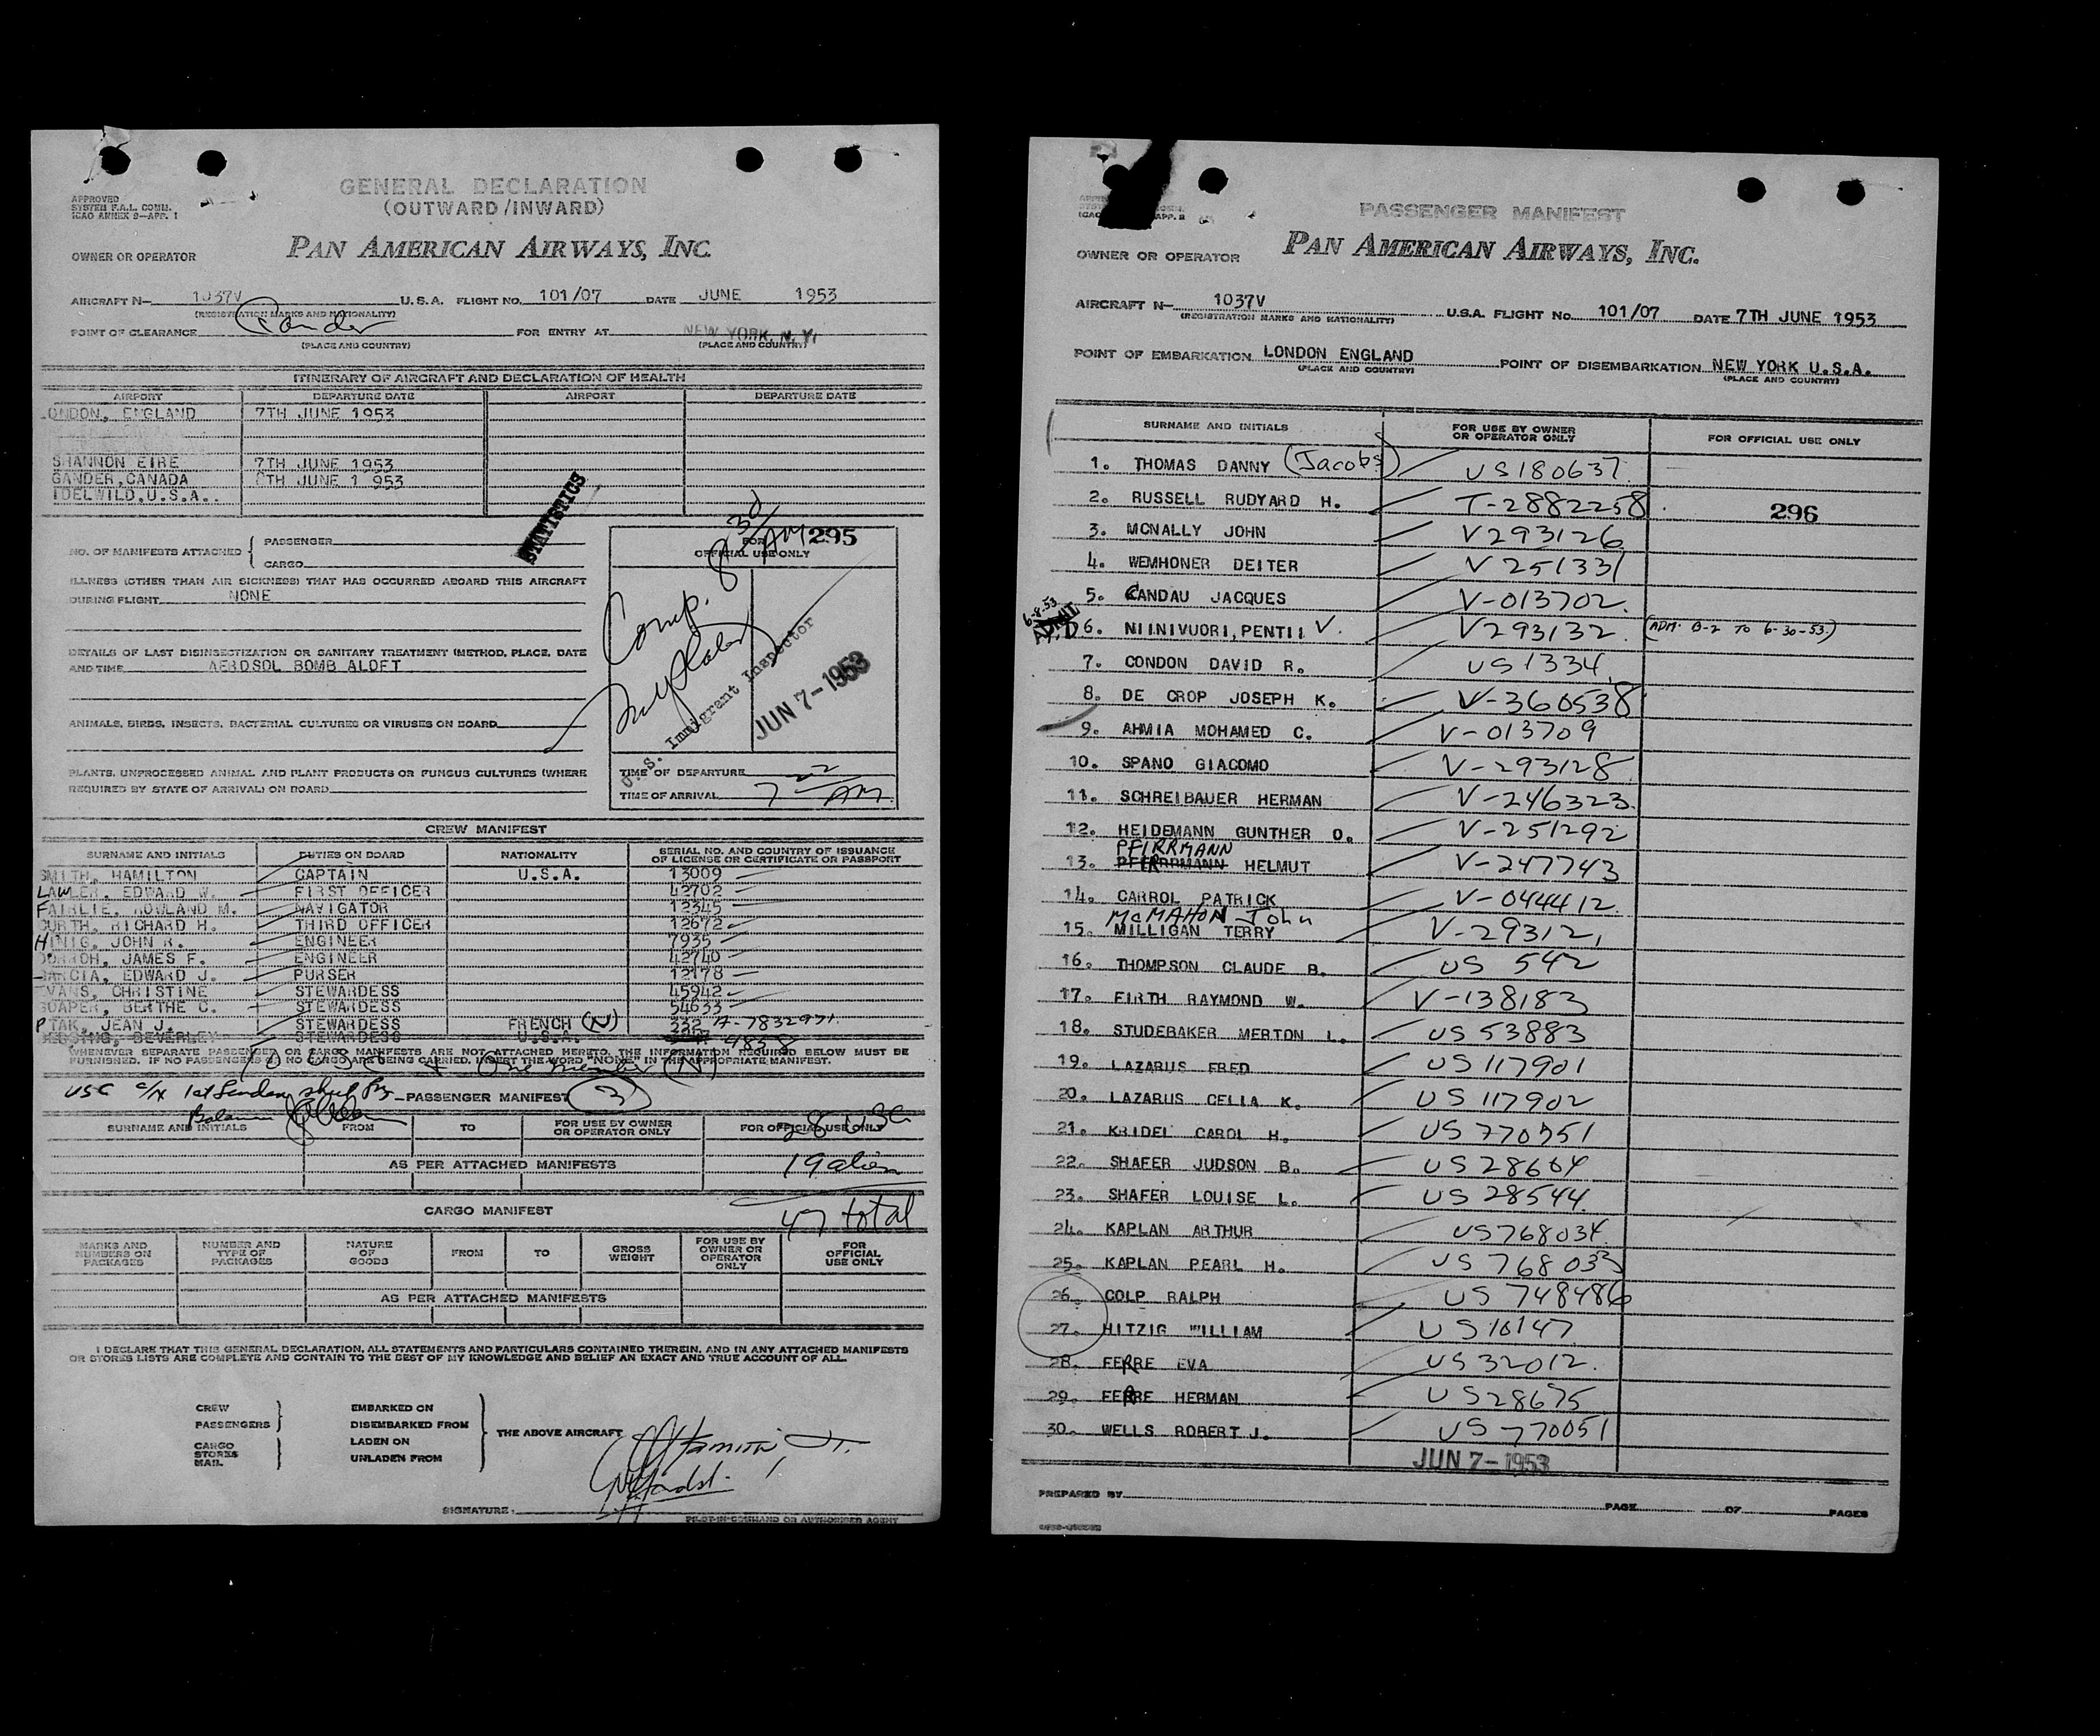 GENERAL DECLARATION
(OUTWARD/INWARD)
APPROVED
SYSTEM F.A.L. COMM.
ICAO ANNEX 9—APP. 1
OWNER OR OPERATOR PAN AMERICAN AIRWAYS, INC.
AIRCRAFT N— 1037V U.S.A. FLIGHT NO. 101/07 DATE JUNE 1953
(REGISTRATION MARKS AND NATIONALITY)
POINT OF CLEARANCE Gander FOR ENTRY AT NEW YORK, N.Y.
(PLACE AND COUNTRY) (PLACE AND COUNTRY)
ITINERARY OF AIRCRAFT AND DECLARATION OF HEALTH
AIRPORT DEPARTURE DATE AIRPORT DEPARTURE DATE
LONDON, ENGLAND 7TH JUNE 1953
SHANNON EIRE 7TH JUNE 1953
GANDER, CANADA 8TH JUNE 1 953
IDELWILD, U.S.A..
STATISTICS
NO. OF MANIFESTS ATTACHED { PASSENGER
CARGO
FOR
OFFICIAL USE ONLY
295
Comp. 8 30 AM
U.S. Immigrant Inspector
JUN 7 - 1953
ILLNESS (OTHER THAN AIR SICKNESS) THAT HAS OCCURRED ABOARD THIS AIRCRAFT
DURING FLIGHT NONE
DETAILS OF LAST DISINSECTIZATION OR SANITARY TREATMENT (METHOD, PLACE, DATE
AND TIME AEROSOL BOMB ALOFT
ANIMALS, BIRDS, INSECTS, BACTERIAL CULTURES OR VIRUSES ON BOARD
PLANTS, UNPROCESSED ANIMAL AND PLANT PRODUCTS OR FUNGUS CULTURES (WHERE
REQUIRED BY STATE OF ARRIVAL) ON BOARD
TIME OF DEPARTURE
TIME OF ARRIVAL 7 22 AM
CREW MANIFEST
SURNAME AND INITIALS DUTIES ON BOARD NATIONALITY SERIAL NO. AND COUNTRY OF ISSUANCE
OF LICENSE OR CERTIFICATE OR PASSPORT
SMITH, HAMILTON CAPTAIN U.S.A. 13009
LAWLER, EDWARD W. FIRST OFFICER 42702
FAIRLIE, ROWLAND M. NAVIGATOR 12345
CURTH, RICHARD H. THIRD OFFICER 12672
HINIG, JOHN R. ENGINEER 7935
JAMES F. ENGINEER 42740
GARCIA, EDWARD J. PURSER 12178
EVANS, CHRISTINE STEWARDESS 45942
SOAPER, BERTHE C. STEWARDESS 54633
PTAK, JEAN J. STEWARDESS FRENCH (N) 332 A-7832971
BEVERLEY STEWARDESS U.S.A. 4838
WHENEVER SEPARATE PASSENGER OR CARGO MANIFESTS ARE NOT ATTACHED HERETO, THE INFORMATION REQUIRED BELOW MUST BE
FURNISHED. IF NO PASSENGERS OR NO CARGO ARE BEING CARRIED, INSERT THE WORD "NONE" IN THE APPROPRIATE MANIFEST.
10 USC + One member (N)
USC
PASSENGER MANIFEST (3)
SURNAME AND INITIALS FROM TO FOR USE BY OWNER
OR OPERATOR ONLY FOR OFFICIAL USE ONLY
28 USC
AS PER ATTACHED MANIFESTS 19 alien
CARGO MANIFEST 47 total
MARKS AND
NUMBERS ON
PACKAGES NUMBER AND
TYPE OF
PACKAGES NATURE
OF
GOODS FROM TO GROSS
WEIGHT FOR USE BY
OWNER OR
OPERATOR
ONLY FOR
OFFICIAL
USE ONLY
AS PER ATTACHED MANIFESTS
I DECLARE THAT THIS GENERAL DECLARATION, ALL STATEMENTS AND PARTICULARS CONTAINED THEREIN, AND IN ANY ATTACHED MANIFESTS
OR STORES LISTS ARE COMPLETE AND CONTAIN TO THE BEST OF MY KNOWLEDGE AND BELIEF AN EXACT AND TRUE ACCOUNT OF ALL.
CREW EMBARKED ON
PASSENGERS DISEMBARKED FROM THE ABOVE AIRCRAFT
CARGO LADEN ON
STORES
MAIL UNLADEN FROM
SIGNATURE
PILOT-IN-COMMAND OR AUTHORISED AGENT
PASSENGER MANIFEST
APP. 2
OWNER OR OPERATOR PAN AMERICAN AIRWAYS, INC.
AIRCRAFT N— 1037V U.S.A. FLIGHT NO. 101/07 DATE 7TH JUNE 1953
(REGISTRATION MARKS AND NATIONALITY)
POINT OF EMBARKATION LONDON ENGLAND POINT OF DISEMBARKATION NEW YORK U.S.A.
(PLACE AND COUNTRY) (PLACE AND COUNTRY)
SURNAME AND INITIALS FOR USE BY OWNER
OR OPERATOR ONLY FOR OFFICIAL USE ONLY
1. THOMAS DANNY (Jacobs) US180637
2. RUSSELL RUDYARD H. T-2882258
296
3. MCNALLY JOHN V293126
4. WEMHONER DEITER V251331
5. CANDAU JACQUES V-013702
6-8-53
ADMIT
6. NIINIVUORI, PENTII V. V293132 (ADM. B-2 TO 6-30-53)
7. CONDON DAVID R. US1334
8. DE CROP JOSEPH K. V-360538
9. AHMIA MOHAMED C. V-013709
10. SPANO GIACOMO V-293128
11. SCHREIBAUER HERMAN V-246323
12. HEIDEMANN GUNTHER O. V-251292
PFIRRMANN
13. HELMUT V-247743
14. CARROL PATRICK V-044412
McMAHON John
15. MILLIGAN TERRY V-293121
16. THOMPSON CLAUDE B. US 542
17. FIRTH RAYMOND W. V-138183
18. STUDEBAKER MERTON L. US 53883
19. LAZARUS FRED US117901
20. LAZARUS CELIA K. US 117902
21. KRIDEL CAROL H. US 770551
22. SHAFER JUDSON B. US28604
23. SHAFER LOUISE L. US 28544
24. KAPLAN ARTHUR US768034
25. KAPLAN PEARL H. US 768033
26. COLP RALPH US 748486
27. HITZIG WILLIAM US16147
28. FERRE EVA US32012
29. FERRE HERMAN US28675
30. WELLS ROBERT J. US 770051
JUN 7 - 1953
PREPARED BY PAGE OF PAGES